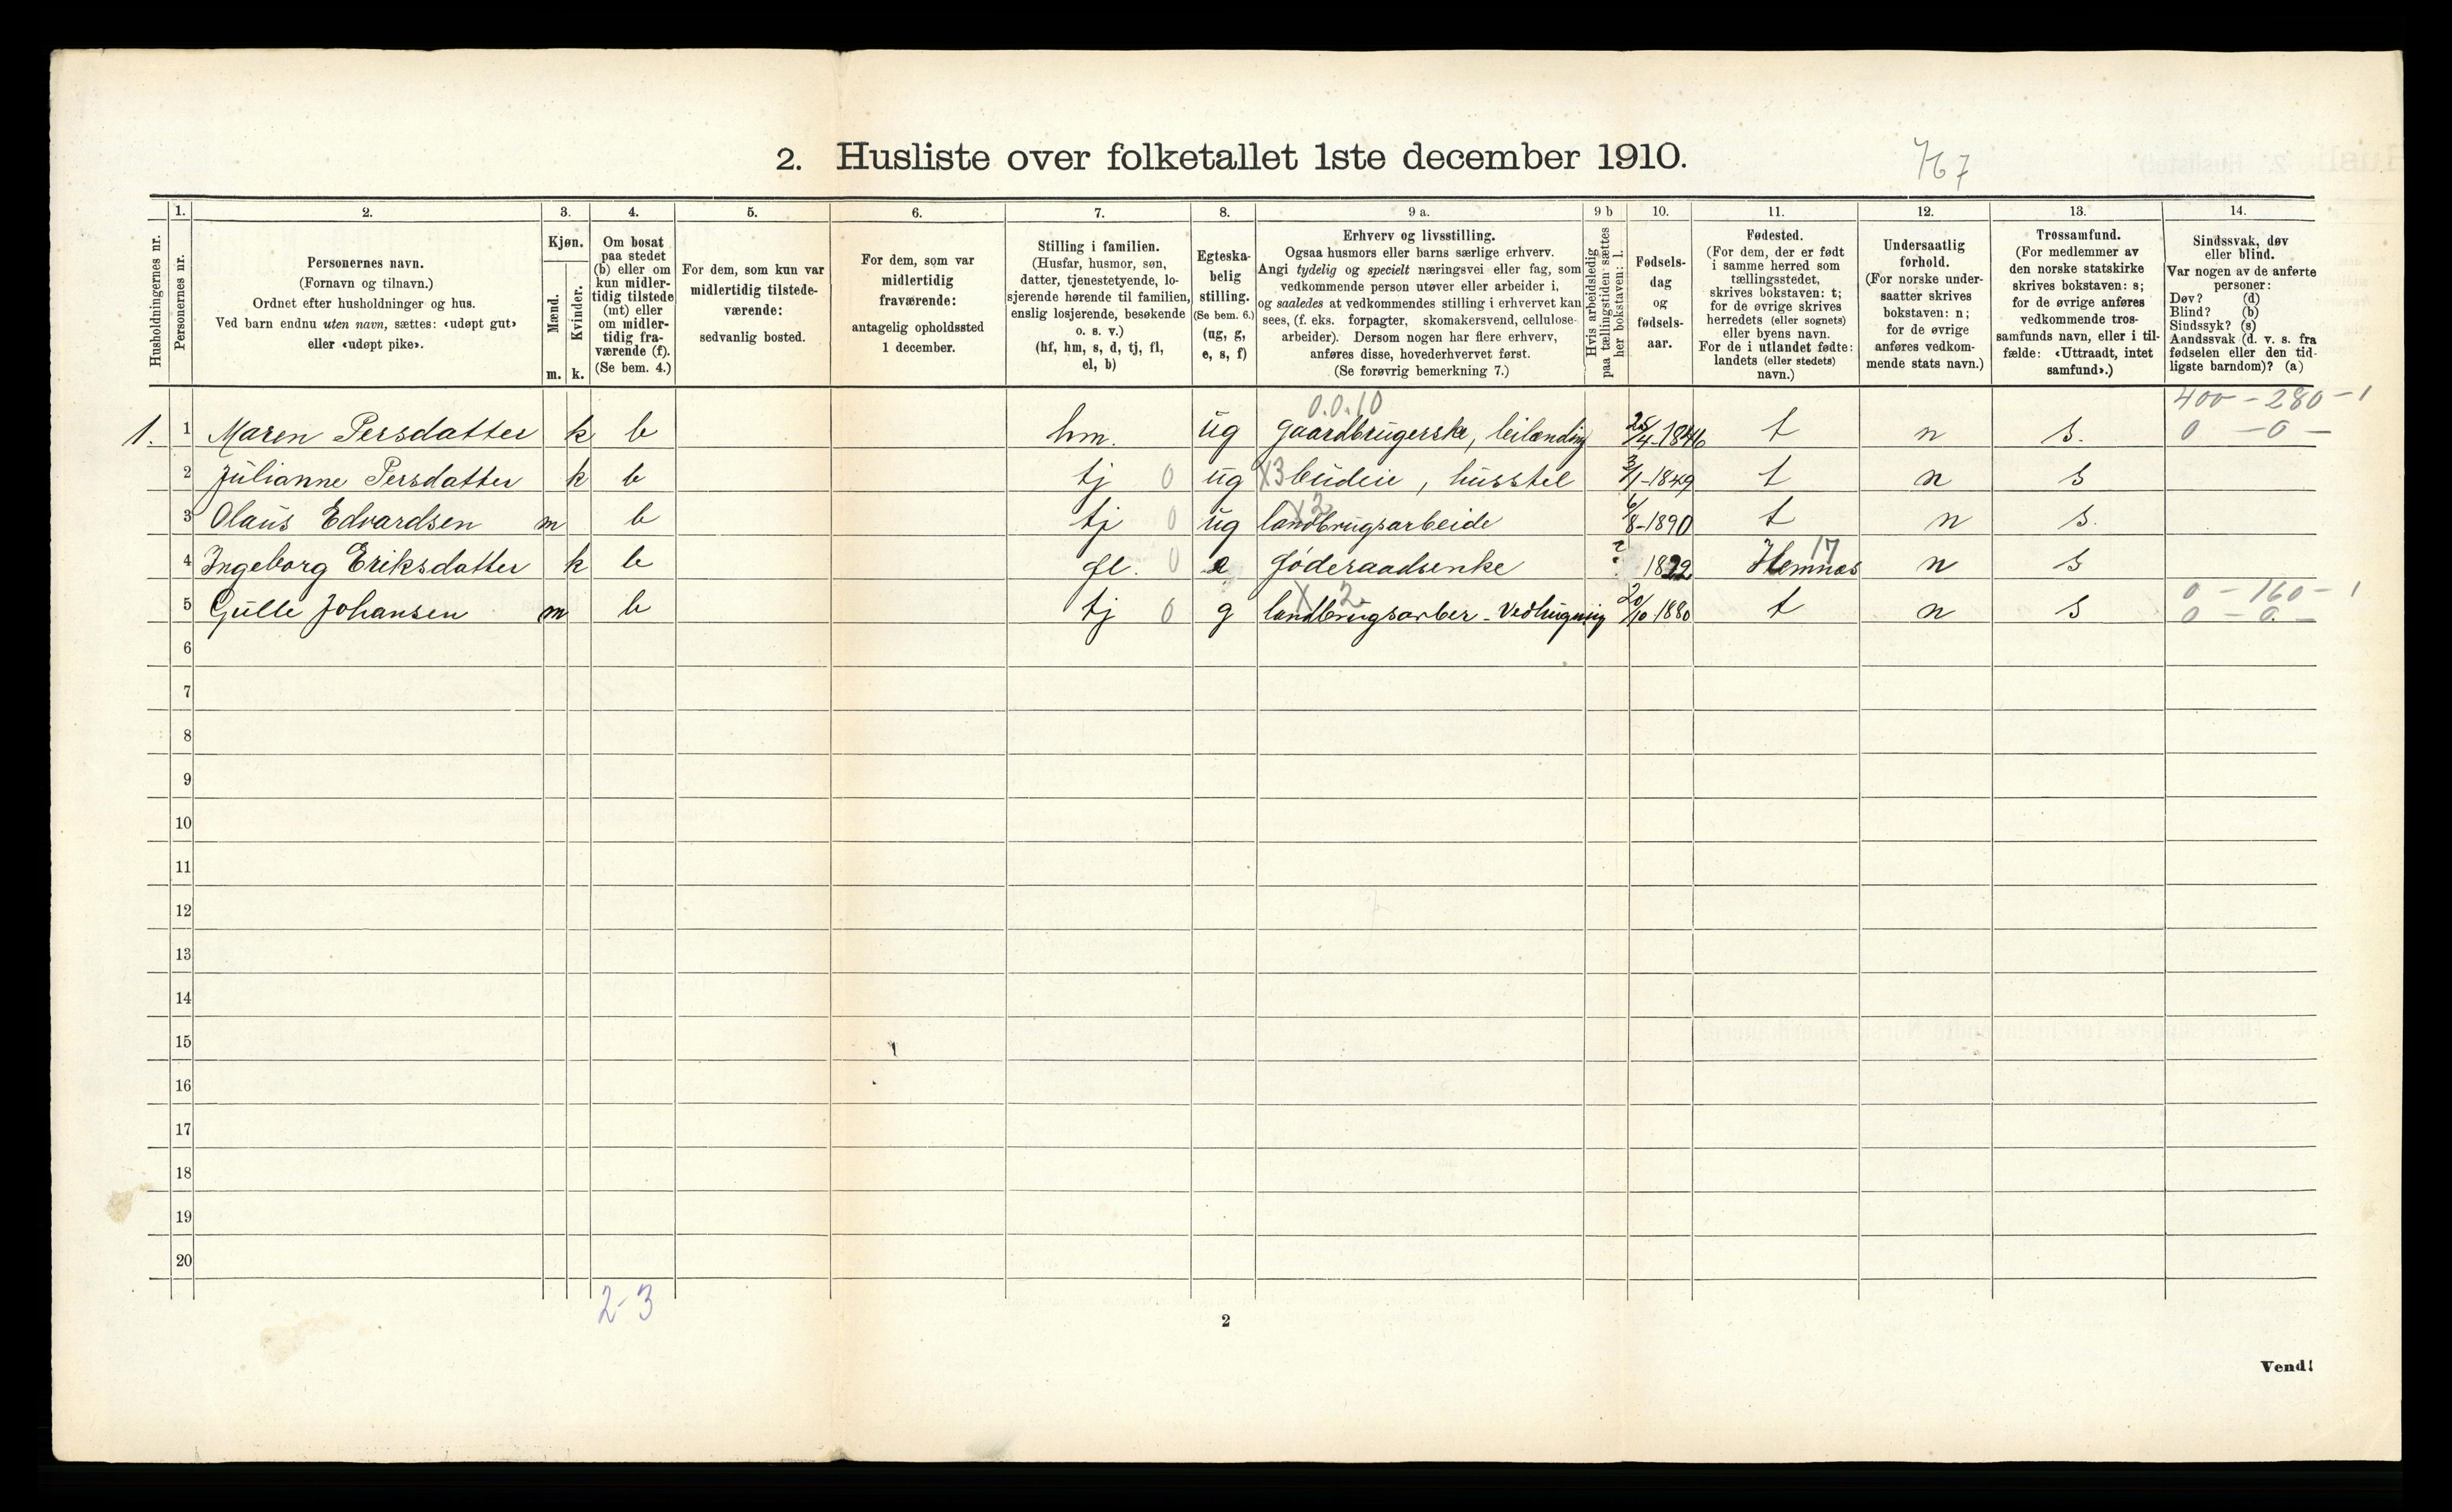 2. Husliste over folketallet 1ste december 1910.
767
Husholdningernes nr.
1.
Personernes nr.
2.
Personernes navn.
(Fornavn og tilnavn.)
Ordnet efter husholdninger og hus.
Ved barn endnu uten navn, sættes: «udøpt gut»
eller «udøpt pike».
3.
Kjøn.
Mænd.
Kvinder.
m. k.
4.
Om bosat
paa stedet
(b) eller om
kun midler-
tidig tilstede
(mt) eller
om midler-
tidig fra-
værende (f).
(Se bem. 4.)
5.
For dem, som kun var
midlertidig tilstede-
værende:
sedvanlig bosted.
6.
For dem, som var
midlertidig
fraværende:
antagelig opholdssted
1 december.
7.
Stilling i familien.
(Husfar, husmor, søn,
datter, tjenestetyende, lo-
sjerende hørende til familien,
enslig losjerende, besøkende
o. s. v.)
(hf, hm, s, d, tj, fl,
el, b)
8.
Egteska-
belig
stilling.
(Se bem. 6.)
(ug, g,
e, s, f)
9 a.
Erhverv og livsstilling.
Ogsaa husmors eller barns særlige erhverv.
Angi tydelig og specielt næringsvei eller fag, som
vedkommende person utøver eller arbeider i,
og saaledes at vedkommendes stilling i erhvervet kan
sees, (f. eks. forpagter, skomakersvend, cellulose-
arbeider). Dersom nogen har flere erhverv,
anføres disse, hovederhvervet først.
(Se forøvrig bemerkning 7.)
9 b
Hvis arbeidsledig
paa tællingstiden sættes
her bokstaven: l.
10.
Fødsels-
dag
og
fødsels-
aar.
11.
Fødested.
(For dem, der er født
i samme herred som
tællingsstedet,
skrives bokstaven: t;
for de øvrige skrives
herredets (eller sognets)
eller byens navn.
For de i utlandet fødte:
landets (eller stedets)
navn.)
12.
Undersaatlig
forhold.
(For norske under-
saatter skrives
bokstaven: n;
for de øvrige
anføres vedkom-
mende stats navn.)
13.
Trossamfund.
(For medlemmer av
den norske statskirke
skrives bokstaven: s;
for de øvrige anføres
vedkommende tros-
samfunds navn, eller i til-
fælde: «Uttraadt, intet
samfund».)
14.
Sindssvak, døv
eller blind.
Var nogen av de anførte
personer:
Døv? (d)
Blind? (b)
Sindssyk? (s)
Aandssvak (d. v. s. fra
fødselen eller den tid-
ligste barndom)? (a)
0.0.10 400 - 280 - 1
1. 1 Maren Persdatter k b hm. ug gaardbrugerske, leilending 25/4-1846 t n s. 0 - 0 -
2 Julianne Persdatter k b tj 0 ug X3 budeie, husstel 3/1-1849 t n s
3 Olaus Edvardsen m b tj 0 ug X2 landbrugsarbeide 6/8-1890 t n s.
4 Ingeborg Eriksdatter k b fl. 0 e føderaadsenke ? 1822 Hemnæs 17 n s
0 - 160 - 1
5 Gulle Johansen m b tj 0 g X 2 landbrugsarber - Vedhugning 20/10-1880 t n s 0 - 0. -
6
7
8
9
10
11
12
13
14
15
16
17
18
19
20
2-3
2
Vend!